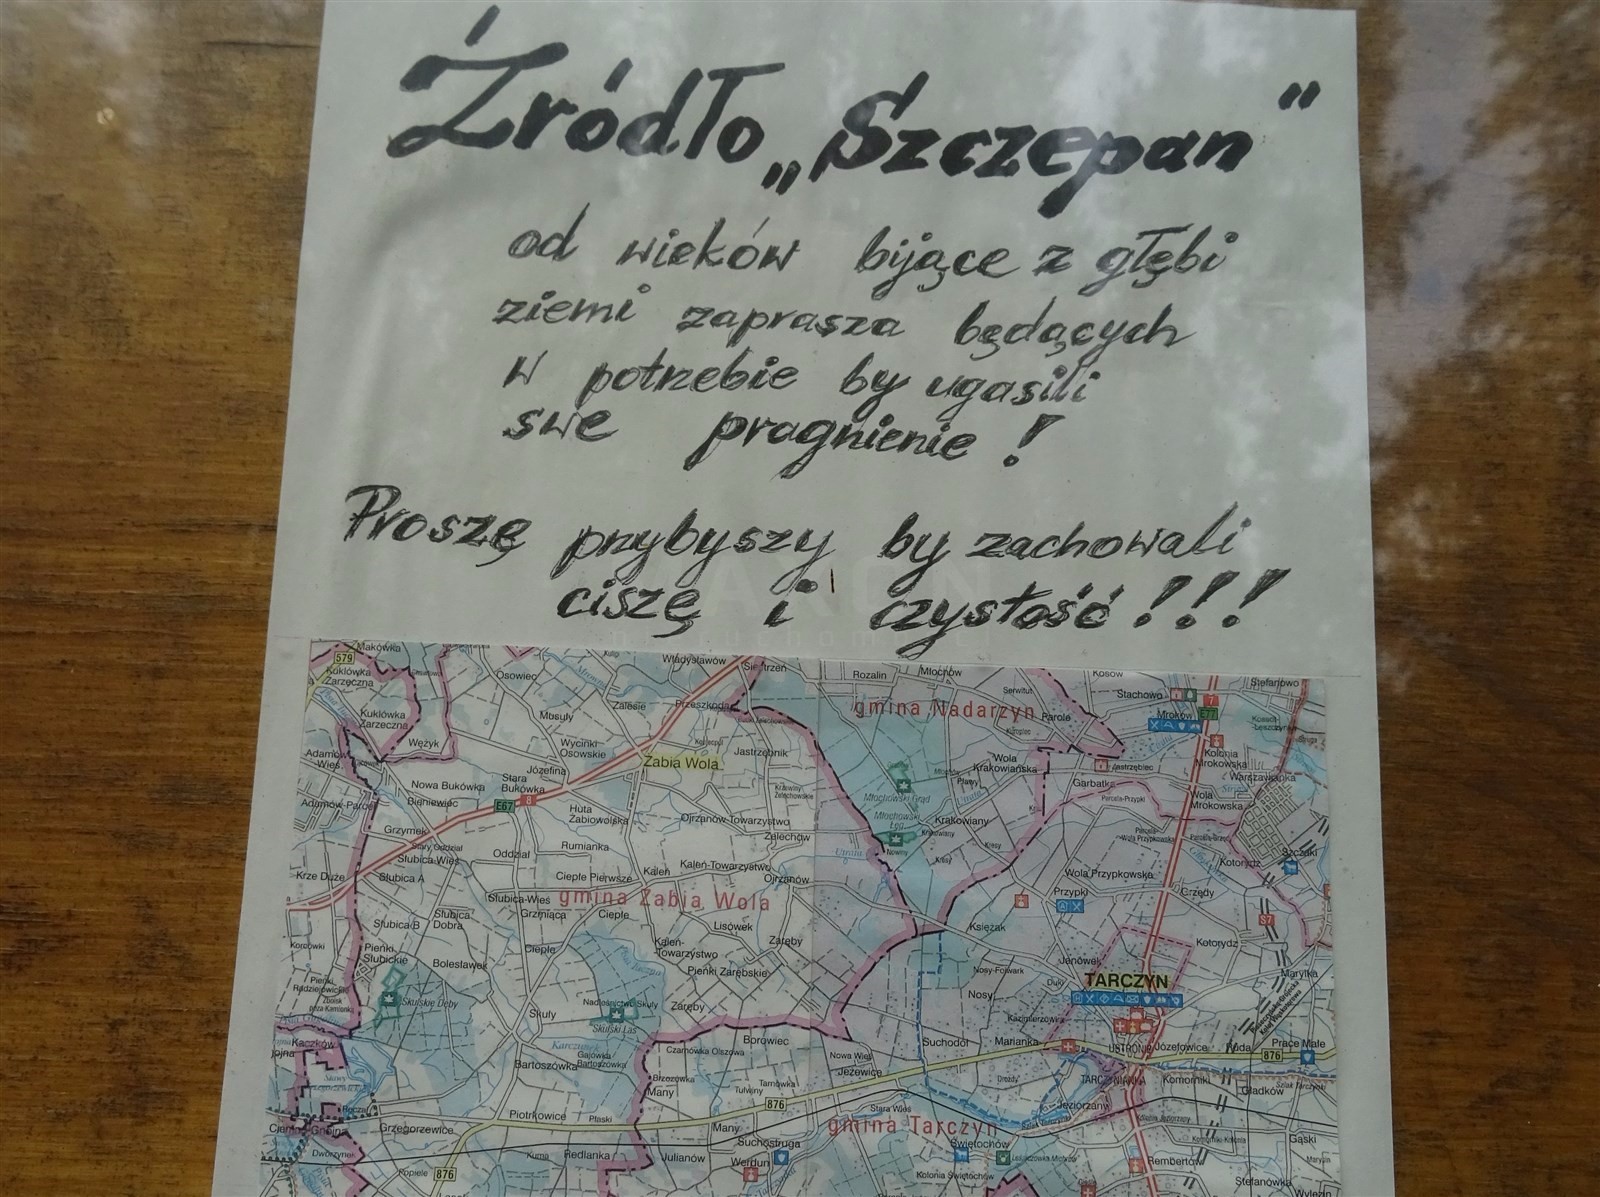 Źródło „Szczepan"
od wieków bijące z głębi
ziemi zaprasza będących
w potrzebie by ugasili
swe pragnienie!
Proszę przybyszy by zachowali
ciszę i czystość!!!
Makówka
Władysławów
579
Kuklówka
Zarzeczna
Osowiec
Rozalin
Młochów
Kosów
Stefanowo
Zalesie
Przeszkoda
Serwitut
Stachowo
Kuklówka
Zarzeczna
Musuły
gmina Nadarzyn
Parole
Mroków
7
E77
Wężyk
Wycinki
Osowskie
Jastrzębnik
Żabia Wola
Wola
Krakowiańska
Kolonia
Mrokowska
Józefina
Nowa Bukówka
Stara
Bukówka
Garbatka
Warszawianka
Bieniewiec
E67
8
Huta
Żabiowolska
Młochowski Grąd
Wola
Mrokowska
Ojrzanów Towarzystwo
Młochowski
Łęg
Krakowiany
Grzymek
Żelechów
Słubica-Wieś
Oddział
Rumianka
Utrata
Nowiny
Krze Duże
Słubica A
Ciepłe Pierwsze
Kaleń
Kaleń-Towarzystwo
Ojrzanów
Wola Przypkowska
Kotorydz
Szczaki
Słubica-Wieś
Grzmiąca
gmina Żabia Wola
Przypki
Grzędy
Słubica B
Słubica
Dobra
Ciepłe
Lisówek
Księżak
S7
Pieńki
Słubickie
Ciepłe
Kaleń-
Towarzystwo
Zaręby
Kotorydz
Bolesławek
Pieńki Zarębskie
Nosy-Folwark
Jenówek
TARCZYN
Marylka
Skulskie Dęby
Skuły
Nadleśnictwo Skuły
Skulski Las
Zaręby
Nosy
Duki
Kazimierzówka
Borowiec
Suchodół
Marianka
Józefowice
Ruda
876
Prace Małe
Bartoszówka
Gajówka
Bartoszówka
Czarnówka Olszowa
Nowa Wieś
Jeżewice
TARCZYNIANKA
Komorniki
Gładków
Brzozówka
Many
Tarnówka
Tulviny
876
Drozdy
Jeziorzany
Piotrkowice
Ptaski
Stara Wieś
Grzegorzewice
Many
gmina Tarczyn
Gąski
Dworzynek
Kuma
Redlanka
Suchostruga
Świętochów
Rembertów
Kopiele
876
Julianów
Werdun
Kolonia Świętochów
Stefanówka